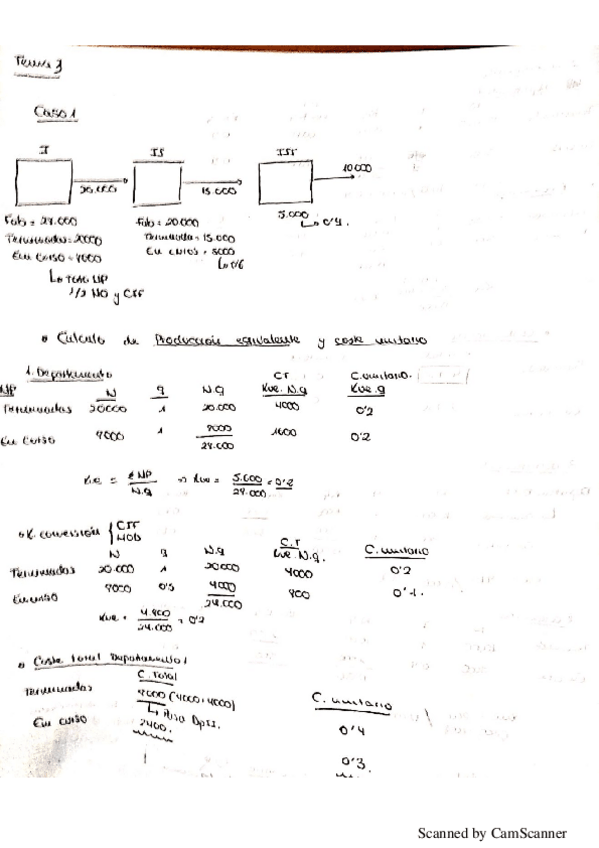 Tema 3
Caso 1
I II III
20.000 15.000 10000
5.000
↳ 0'4.
Fab = 28.000 Fab = 20.000
Terminadas = 20000 Terminada = 15.000
En curso = 8000 En curso = 5000
↳ 0'6
↳ Todo MP
1/2 MO y CIF
• Calculo de Producción equivalente y coste unitario
1. Departamento
MP N q N.q CT Kue. N.q C.unitario. Kue.q
Terminadas 20000 1 20.000 4000 0'2
En curso 8000 1 8000 1600 0'2
28.000
Kue = MP / N.q => Kue = 5.600 / 28.000 = 0'2
• K. conversión { CIF MOD
N q N.q C.T Kue.N.q. C. unitario
Terminadas 20.000 1 20000 4000 0'2
En curso 8000 0'5 4000 800 0'1.
24.000
Kue = 4.800 / 24.000 = 0'2
• Coste total Departamento 1
C. Total
Terminadas 8000 (4000+4000) C. unitario
↳ Pasa Dpt2.
En curso 2400. 0'4
0'3.
Scanned by CamScanner